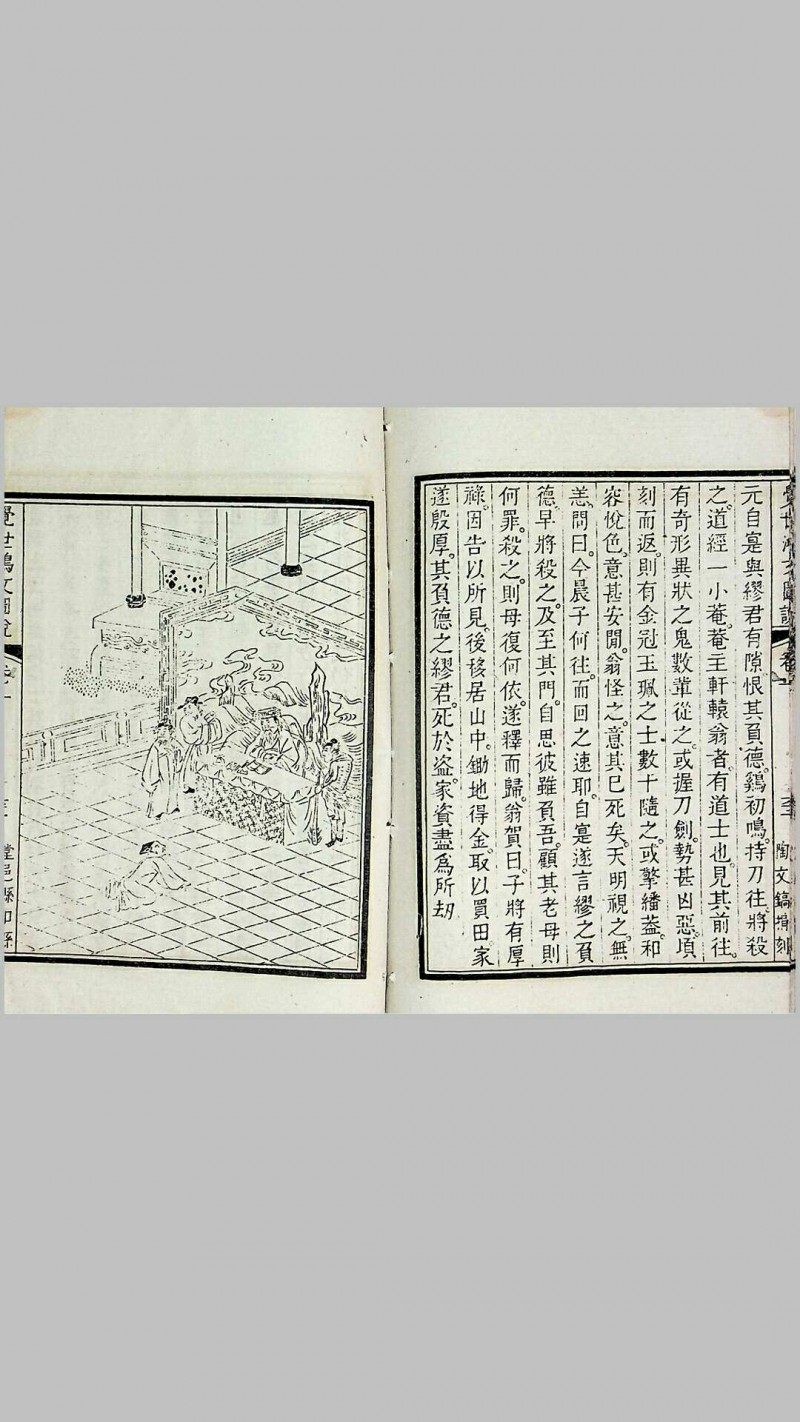 陶文鎬捐刻
元自寔與繆君有隙恨其負德。鷄初鳴。持刀往將殺
之。道經一小菴。菴主軒轅翁者。有道士也。見其前往。
有奇形異狀之鬼數輩從之。或握刀劍。勢甚凶惡。頃
刻而返。則有金冠玉珮之士數十隨之。或擎旛葢。和
容悅色。意甚安閒。翁怪之。意其已死矣。天明視之。無
恙。問曰。今晨子何往。而回之速耶。自寔遂言繆之負
德。早將殺之。及至其門。自思彼雖負吾。顧其老母則
何罪。殺之。則母復何依。遂釋而歸。翁賀曰。子將有厚
祿。因告以所見。後移居山中。鋤地得金。取以買田。家
遂殷厚。其負德之繆君。死於盗。家資盡為所刧
覺世鴻文圖說
堂邑縣知縣